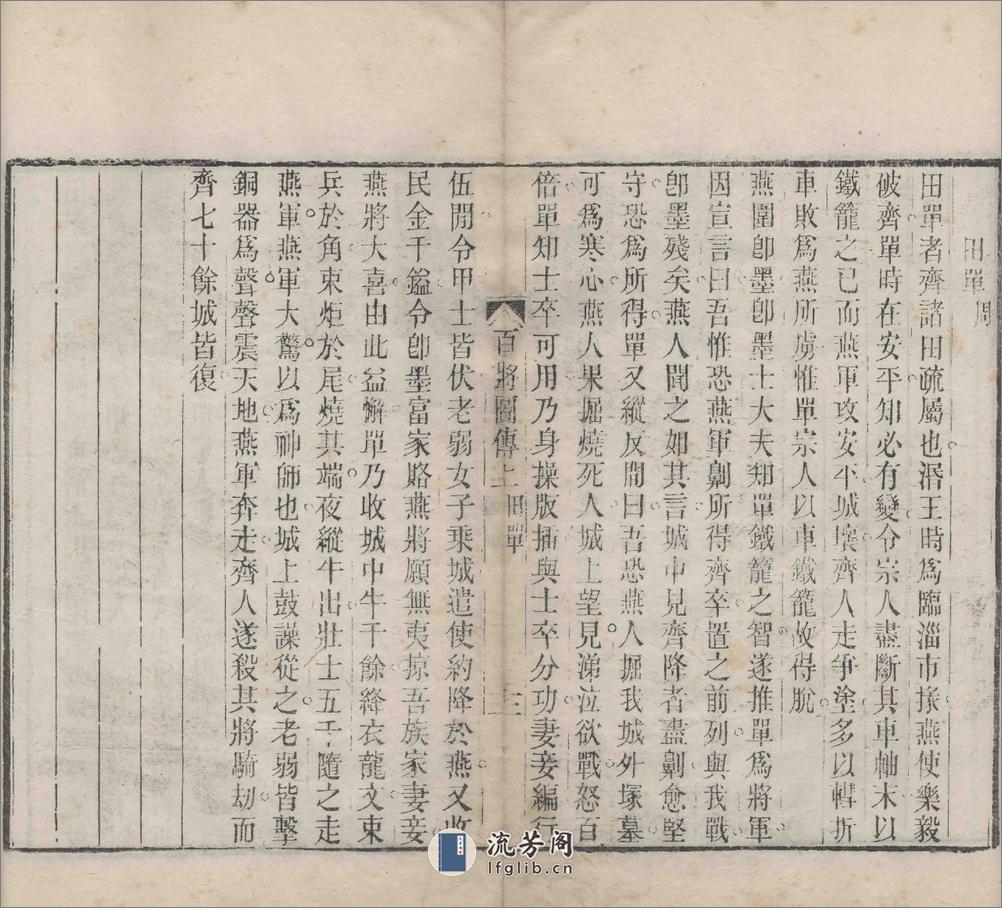 田單周
田單者齊諸田疏屬也湣王時爲臨淄市掾燕使樂毅
破齊單時在安平知必有變令宗人盡斷其車軸末以
鐵籠之已而燕軍攻安平城壞齊人走爭塗多以轊折
車敗爲燕所虜惟單宗人以車鐵籠故得脫
燕圍卽墨卽墨士大夫知單鐵籠之智遂推單爲將軍
因宣言曰吾惟恐燕軍劓所得齊卒置之前列與我戰
卽墨殘矣燕人聞之如其言城中見齊降者盡劓愈堅
守恐爲所得單又縱反閒曰吾恐燕人掘我城外塚墓
可爲寒心燕人果掘燒死人城上望見涕泣欲戰怒百
倍單知士卒可用乃身操版插與士卒分功妻妾編行
百將圖傳上 田單 三
伍閒令甲士皆伏老弱女子乘城遣使約降於燕又收
民金千鎰令卽墨富家賂燕將願無夷掠吾族家妻妾
燕將大喜由此益懈單乃收城中牛千餘絳衣龍文束
兵於角束炬於尾燒其端夜縱牛出壯士五千隨之走
燕軍燕軍大驚以爲神師也城上鼓譟從之老弱皆擊
銅器爲聲聲震天地燕軍奔走齊人遂殺其將騎劫而
齊七十餘城皆復
流芳阁
lfglib.cn